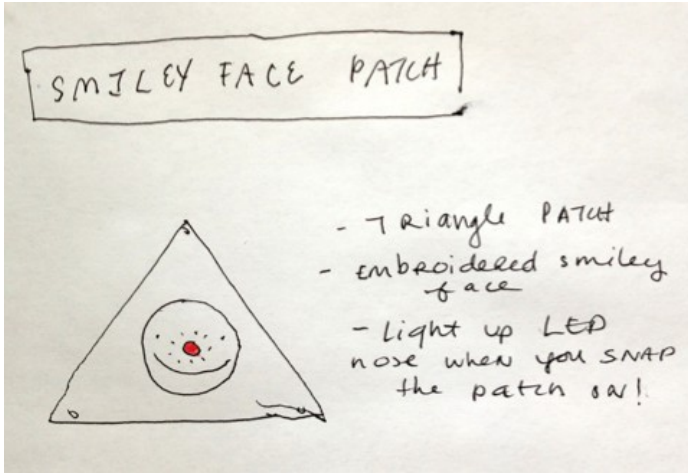 SMILEY FACE PATCH
- TRiangle PATCH
- EMBROIDERED smiley
face
- Light up LED
nose when you SNAP
the patch on!